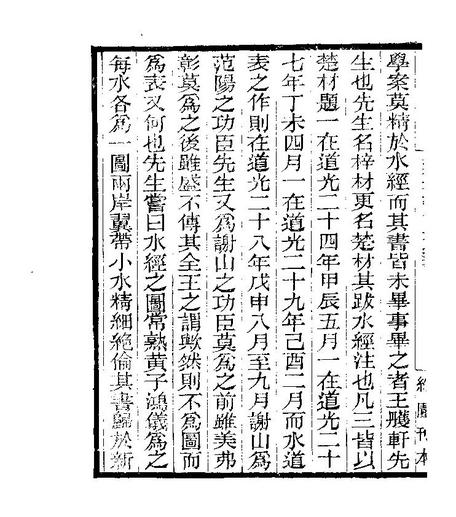 學案莫精於水經而其書皆未畢事畢之者王艧軒先
生也先生名梓材更名楚材其跋水經注也凡三皆以
楚材題一在道光二十四年甲辰五月一在道光二十
七年丁未四月一在道光二十九年己酉二月而水道
表之作則在道光二十八年戊申八月至九月謝山為
范陽之功臣先生又為謝山之功臣莫為之前雖美弗
彰莫為之後雖盛不傳其全王之謂歟然則不為圖而
為表又何也先生嘗曰水經之圖常熟黃子鴻儀為之
每水各為一圖兩岸翼帶小水精細絕倫其書歸於新
約園刊本